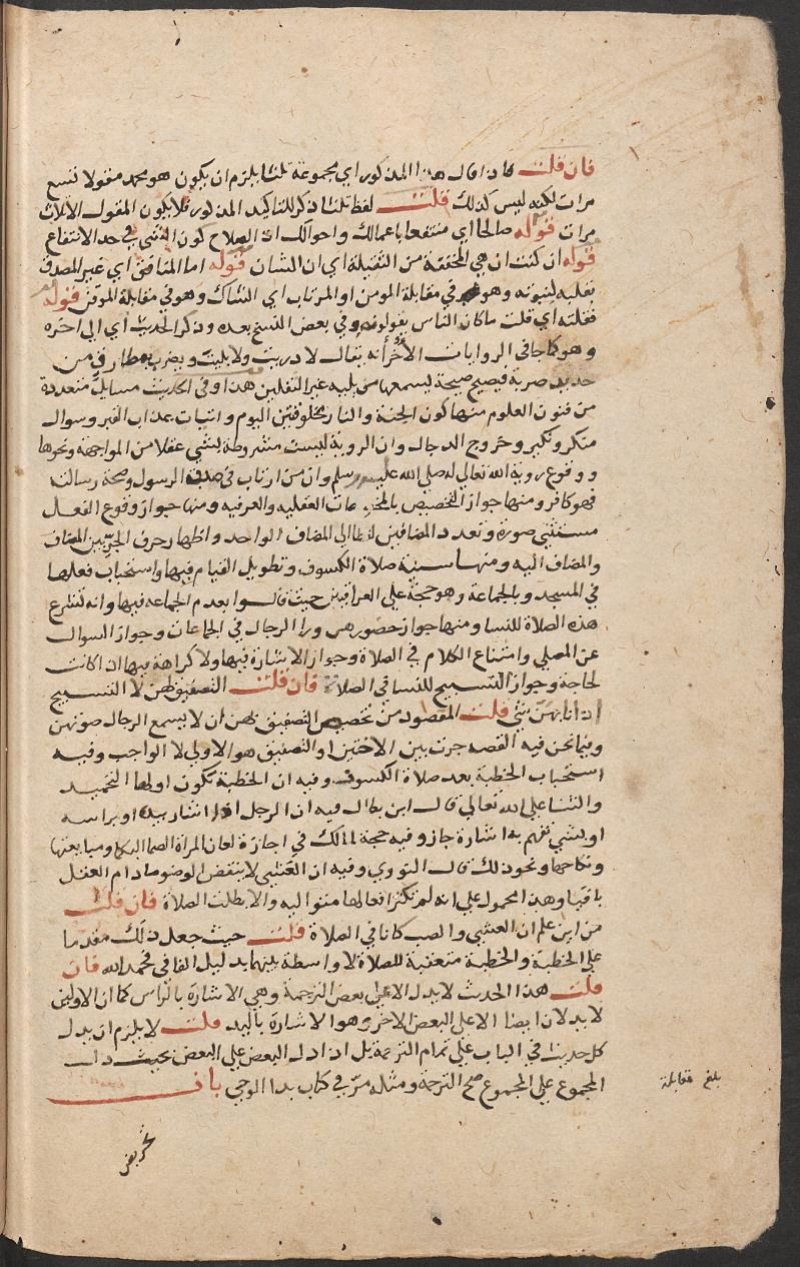 فان قلت فاذا قال هذا المذكور اي مجموعة ثلثا يلزم ان يكون هو محمد مقولا تسع
مرات لكنه ليس كذلك قلت لفظ ثلثا ذكر للتاكيد المذكور فلا يكون المقول الا ثلاث
مرات قوله صالحا اي منتفعا باعمالك واحوالك اذ الصلاح كون الشي في حد الانتفاع
قوله ان كنت ان هي المخففة من الثقيلة اي ان الشان قوله اما المنافق اي غير المصدق
بقلبه لنبوته وهو في مقابلة المومن او المرتاب اي الشاك وهو في مقابلة الموقن قوله
فقلته اي قلت ما كان الناس يقولونه وفي بعض النسخ بعده وذكر الحديث اي الى اخره
وهو كما جا في الروايات الاخر أنه يقال لا دريت ولا تليت ويضرب بمطارق من
حديد ضربة فيصيح صيحة يسمعها من يليه غير الثقلين هذا وفي الحديث مسايل متعددة
من فنون العلوم منها كون الجنة والنار مخلوقتين اليوم واثبات عذاب القبر وسوال
منكر ونكير وخروج الدجال وان الروية ليست مشروطة بشي عقلا من المواجهة ونحوها
ووقوع روية الله تعالي له صلي الله عليه وسلم وان من ارتاب في صدق الرسول وصحة رسالته
فهو كافر ومنها جواز التخصيص بالمخصصات العقليه والعرفيه ومنها جواز وقوع الفعل
مستثني صورة وتعدد المضافين لفظا الي المضاف الواحد واظهار حرف الجر بين المضاف
والمضاف اليه ومنها سنية صلاة الكسوف وتطويل القيام فيها واستحباب فعلها
في المسجد وبالجماعة وهو حجة علي العراقيين حيث قالوا بعدم الجماعه فيها وانه تشرع
هذه الصلاة للنسا ومنها جواز حضورهن ورا الرجال في الجماعات وجواز السوال
عن المصلي وامتناع الكلام في الصلاة وجواز الاشارة فيها ولا كراهة فيها اذا كانت
لحاجة وجواز التسبيح للنسا في الصلاة فان قلت التصفيق لهن لا التسبيح
اذا نابهن شي قلت المقصود من تخصيص التصفيق بهن ان لا يسمع الرجال صوتهن
وفيما نحن فيه القصه جرت بين الاختين او التصفيق هو الاولي لا الواجب وفيه
استحباب الخطبة بعد صلاة الكسوف وفيه ان الخطبة تكون اولها التحميد
والثنا علي الله تعالي قال ابن بطال فيه ان الرجل اذا اشار بيده او براسه
او بشي يفهم به اشارة جاز وفيه حجة لمالك في اجازة لعان المراة الصما البكما ومبايعتها
ونكاحها ونحو ذلك قال النووي وفيه ان الغشي لا ينقض الوضو ما دام العقل
باقيا وهذا محمول علي انه لم تكثر افعالها متواليه والا بطلت الصلاة فان قلت
من اين علم ان الغشي والصب كانا في الصلاة قلت حيث جعل ذلك مقدما
علي الخطبة والخطبة متعقبة للصلاة لا واسطة بينهما بدليل الفا في فحمد الله فان
قلت هذا الحديث لا يدل الا علي بعض الترجمة وهي الاشارة بالراس كما ان الاولين
لا يدلان ايضا الا علي البعض الاخر وهو الاشارة باليد قلت لا يلزم ان يدل
كل حديث في الباب علي تمام الترجمة بل اذا دل البعض علي البعض بحيث دل
المجموع علي المجموع صح الترجمة ومثله مر في كتاب بدا الوحي باب
بلغ مقابلة
تحريض